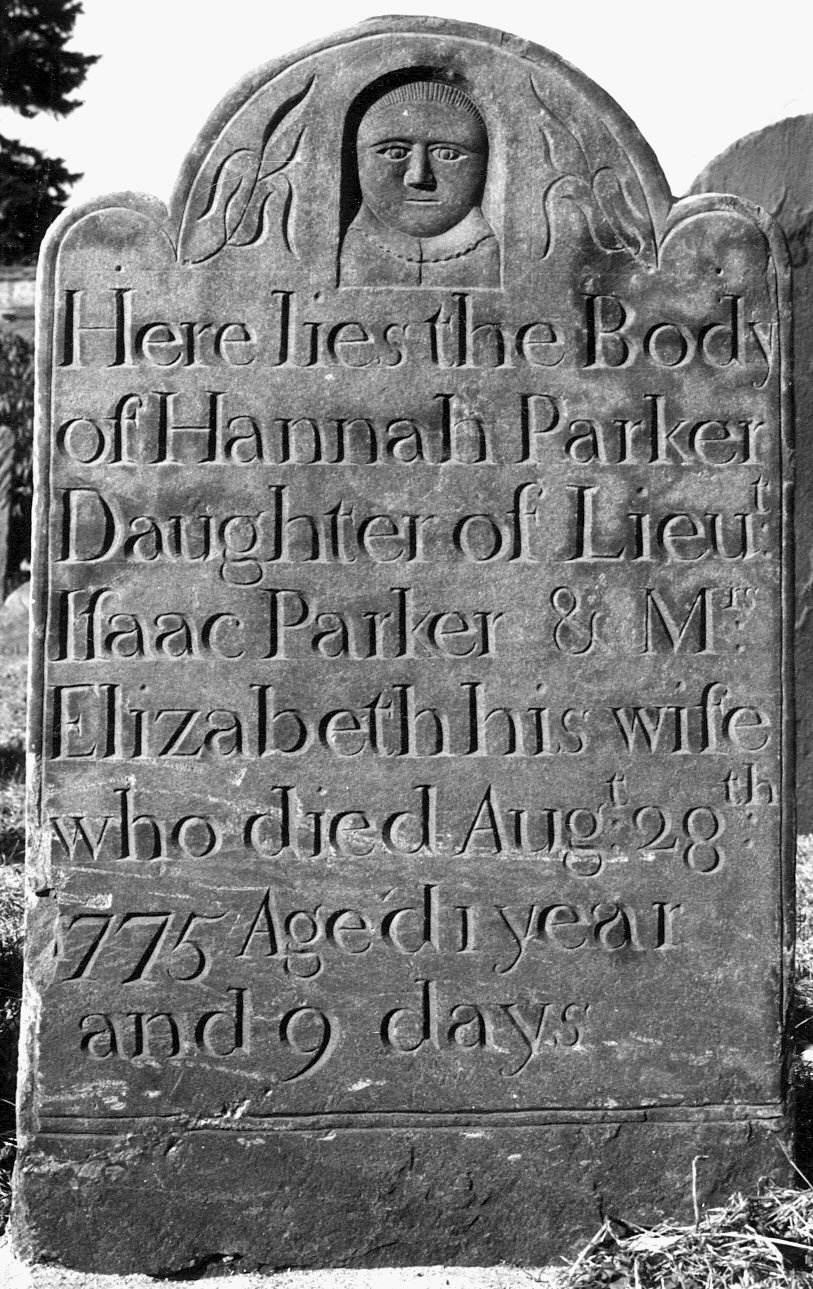 Here lies the Body
of Hannah Parker
Daughter of Lieuᵗ:
Iſaac Parker & Mʳˢ:
Elizabeth his wife
who died Augᵗ: 28ᵗʰ:
775 Aged 1 year
and 9 days